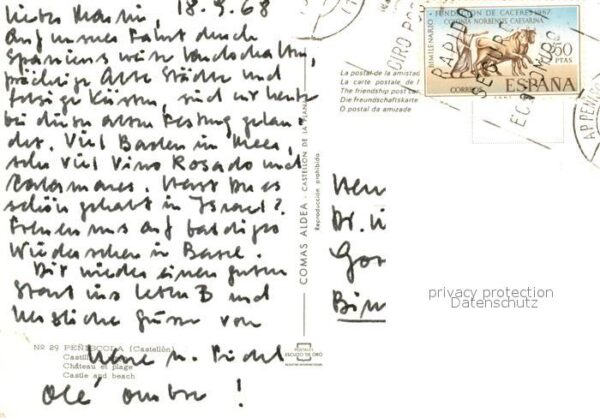 Lieber Martin, 18.9.68
Auf unsrer Fahrt durch
Spaniens weite Landschaften,
prächtige Alte Städte und
felsige Küsten, sind wir heute
bei dieser alten Festung gelan-
det. Viel Baden im Meer,
sehr viel Vino Rosado und
Calamares. Hast Du es
schön gehabt in Israel?
Freuen uns auf baldiges
Wiedersehen in Basel.
Dir wieder einen guten
Start ins Leben B und
herzliche Grüsse von
No 29 PEÑISCOLA (Castellón)
Castill
Château et plage
Castle and beach
Olé ombre !
COMAS ALDEA - CASTELLON DE LA PLANA
Reproducción prohibida
POSTALES
ESCUDO DE ORO
La postal de la amistad
La carte postale de l
The friendship post car
Die Freundschaftskarte
O postal da amizade
BIMILENARIO FUNDACION DE CACERES 1967
COLONIA NORBENSIS CAESARINA
3,50
PTAS
CORREOS
ESPAÑA
GIRO POS
RAPIDO
SEGURO
ECONOMICO
APPENZ
Herr
Dr.
Bin
privacy protection
Datenschutz